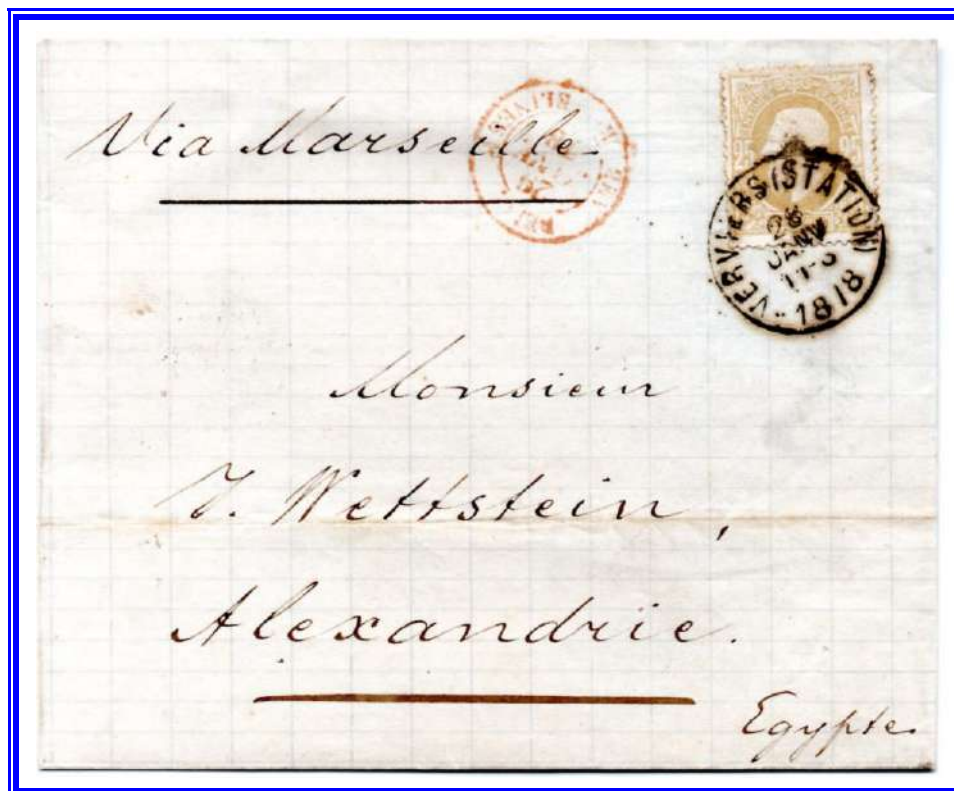 Via Marseille
25 25
VERVIERS (STATION)
JANV
1878
Monsieur
J. Wettstein,
Alexandrie.
Egypte